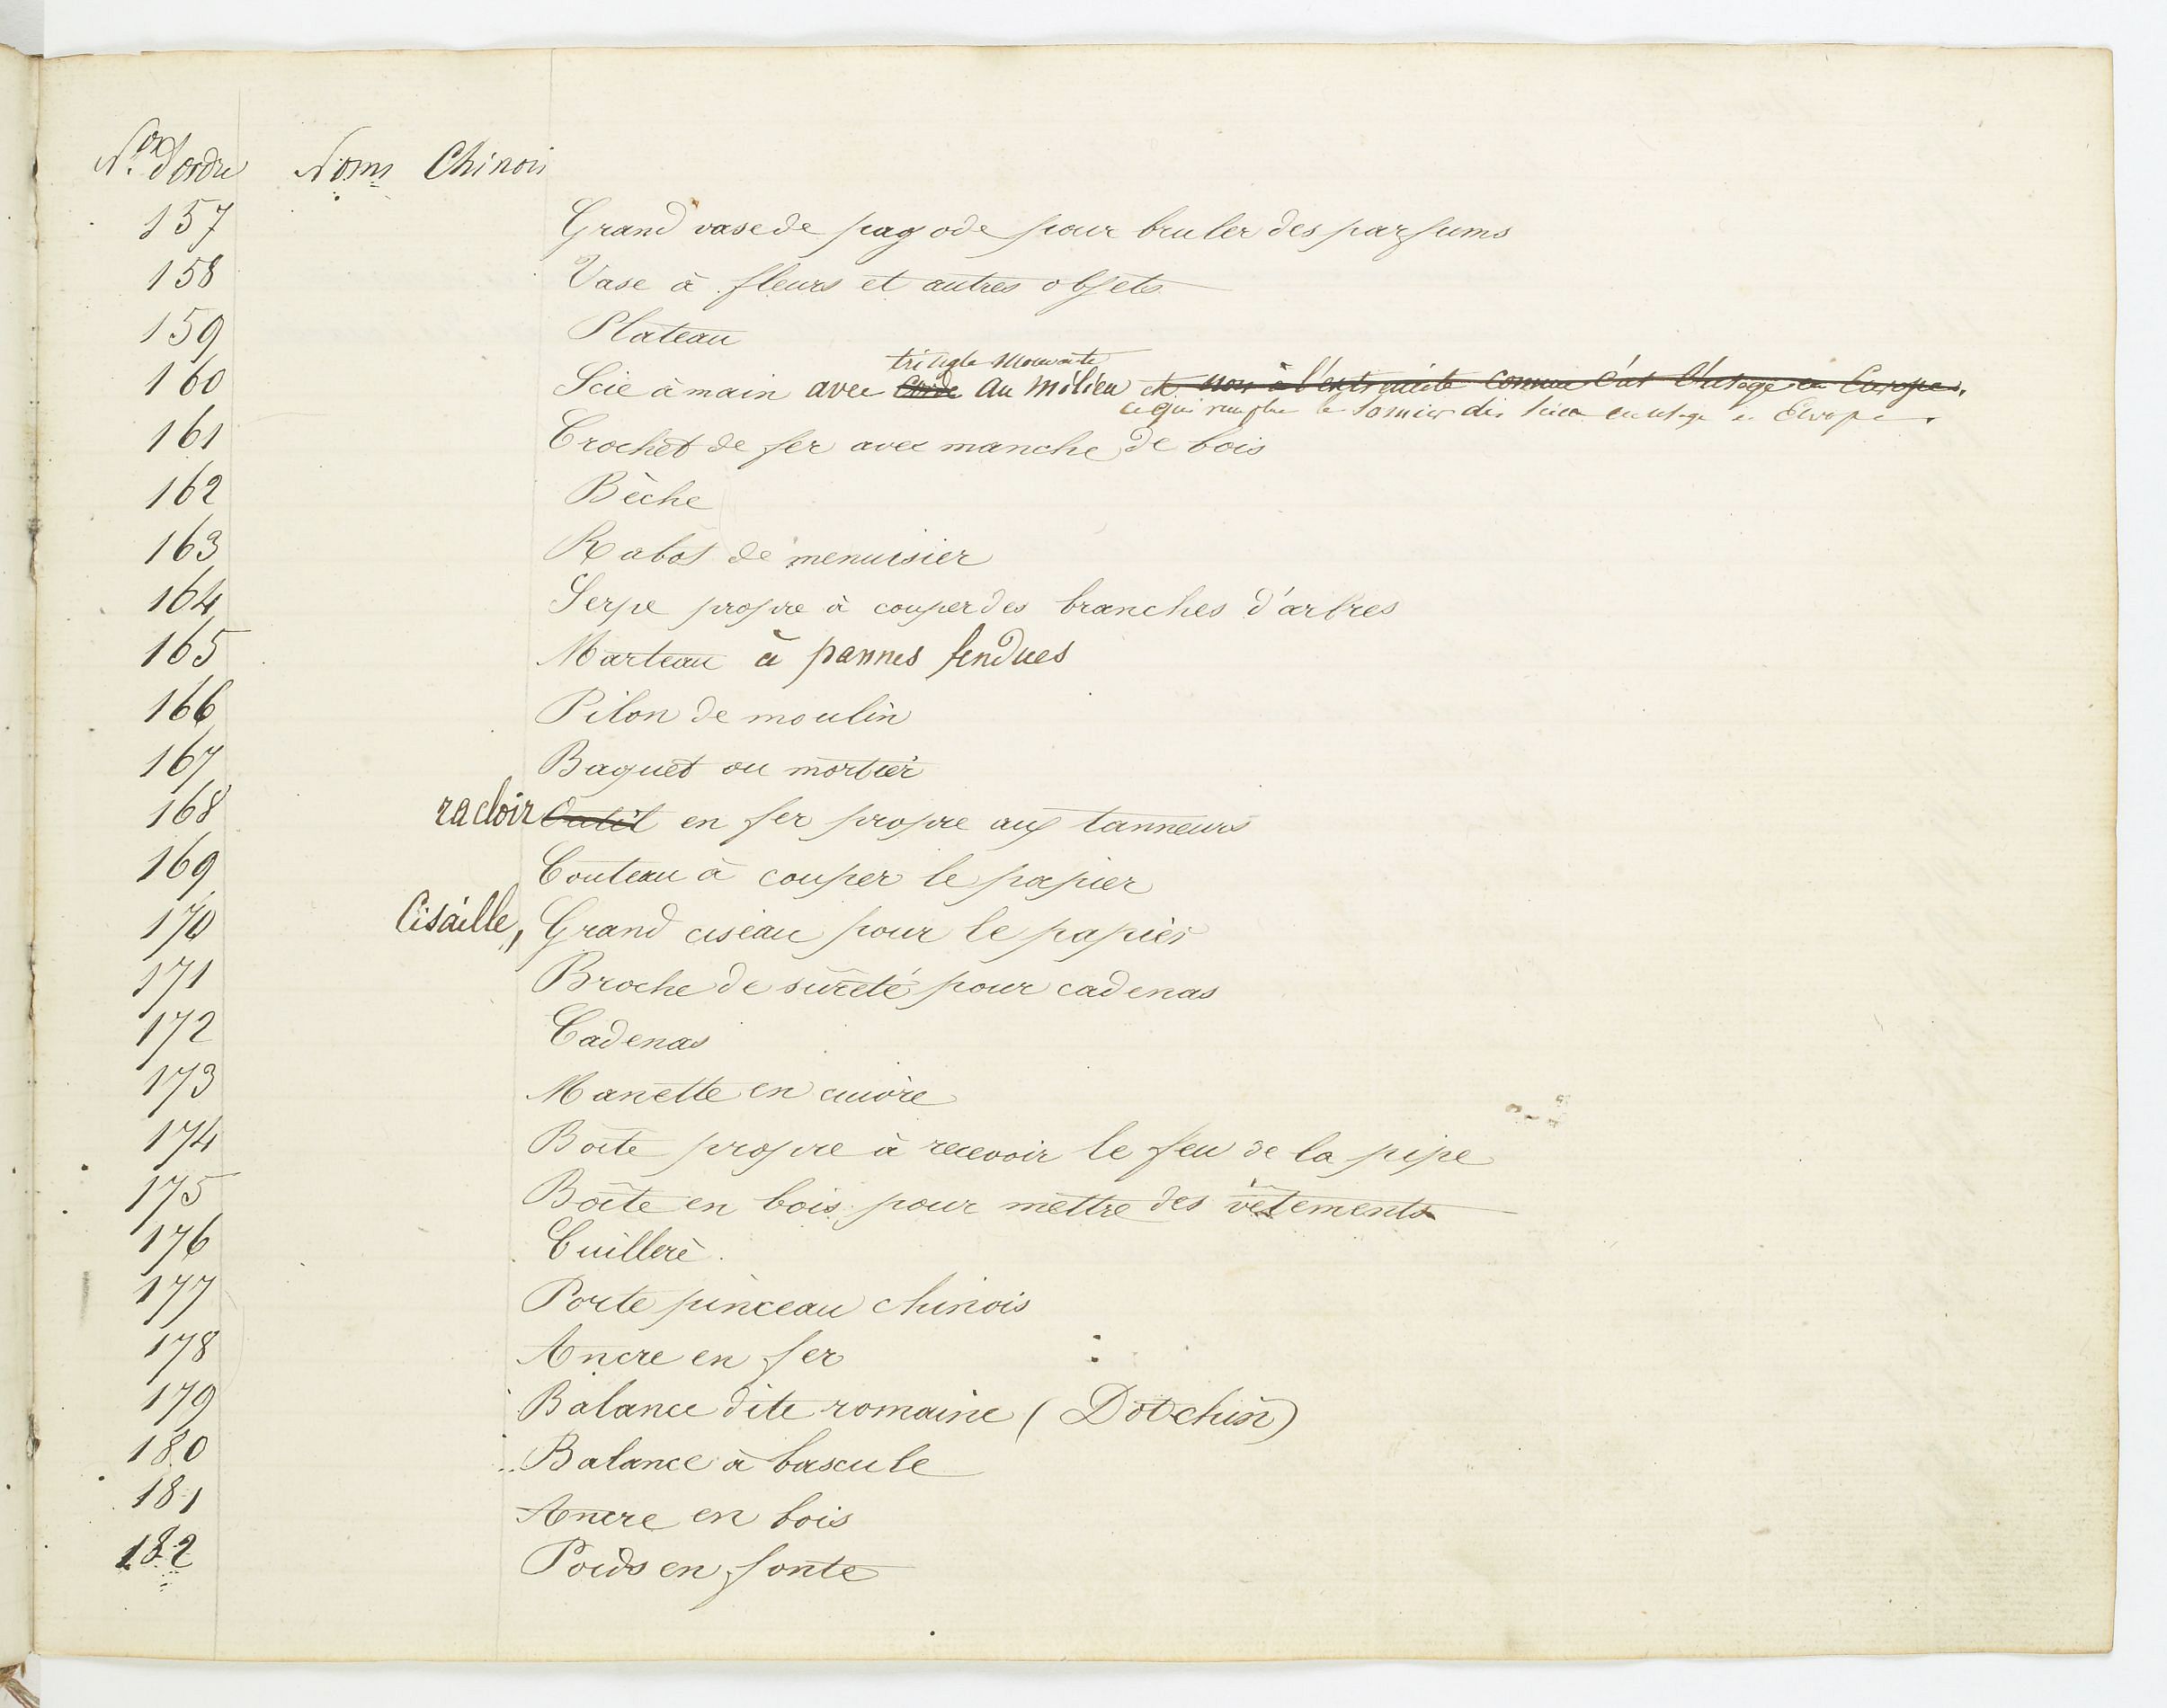 Nos d'ordre Noms Chinois
157 Grand vase de pagode pour bruler des parfums
158 Vase à fleurs et autres objets
159 Plateau
tringle mouvante
160 Scie à main avec corde au milieu et non à l'extrémité comme c'est l'usage en Europe.
ce qui remplace le sommier des scies en usage en Europe.
161 Crochet de fer avec manche de bois
162 Bèche
163 Rabot de menuisier
164 Serpe propre à couper des branches d'arbres
165 Marteau à pannes fendues
166 Pilon de moulin
167 Baquet ou mortier
168 racloir Outil en fer propre aux tanneurs
169 Couteau à couper le papier
170 Cisaille, Grand ciseau pour le papier
171 Broche de sûreté pour cadenas
172 Cadenas
173 Manette en cuivre
174 Boîte propre à recevoir le feu de la pipe
175 Boîte en bois pour mettre des vêtements
176 Cuillere
177 Porte pinceau chinois
178 Ancre en fer
179 Balance dite romaine (Dotchin)
180 Balance à bascule
181 Ancre en bois
182 Poids en fonte